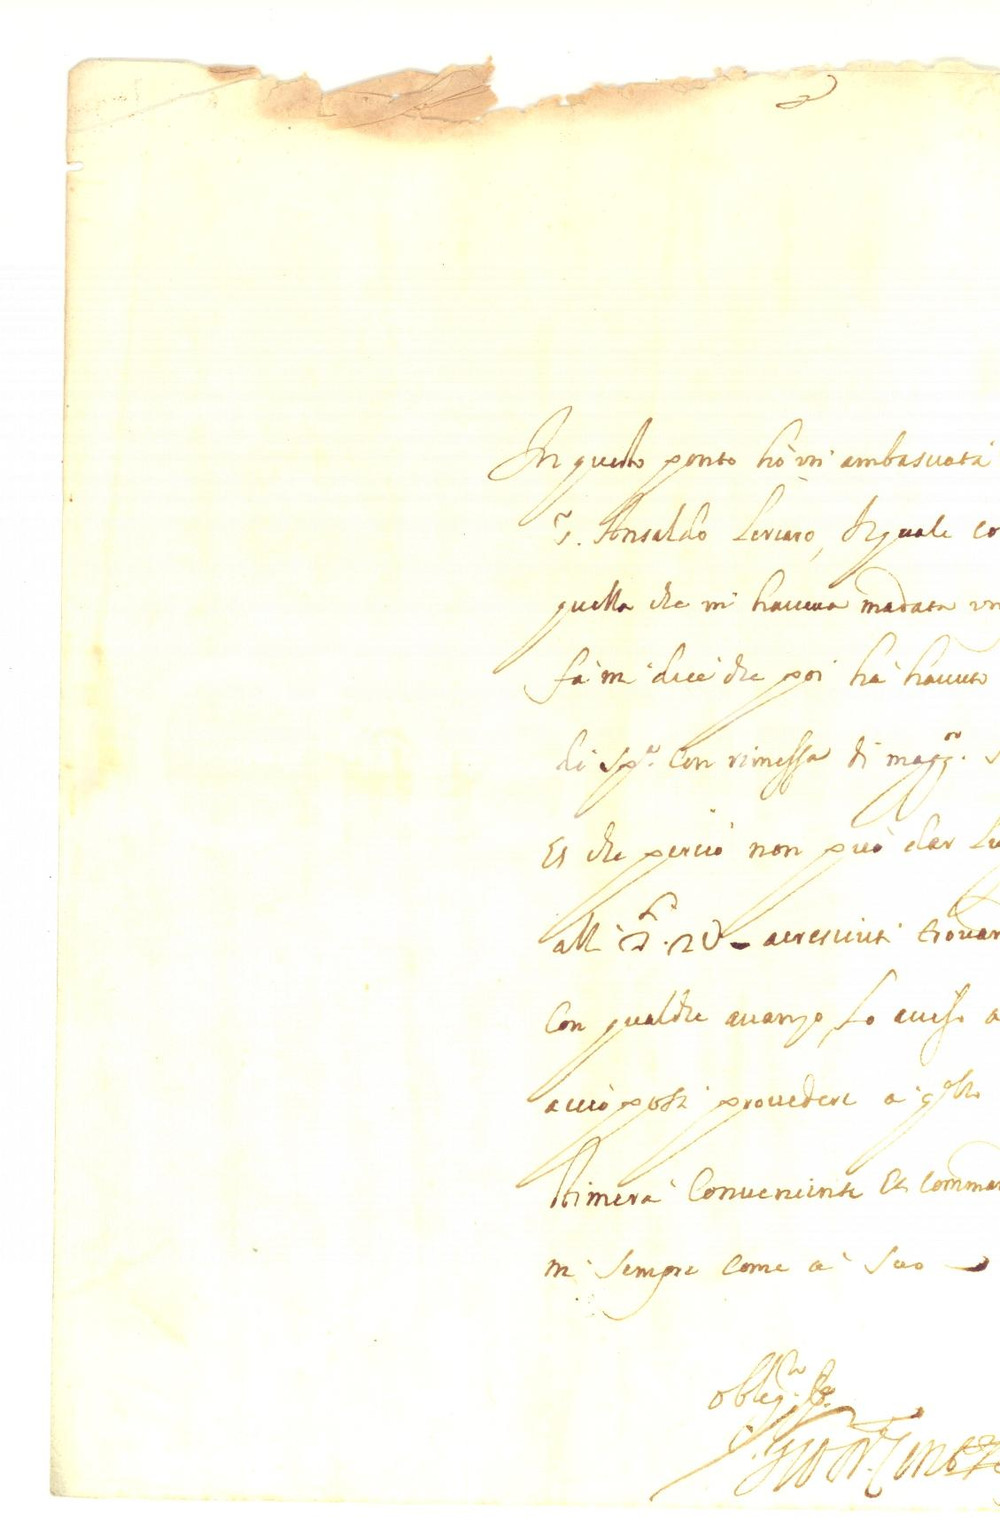 In questo ponto hò un' ambasciata
S.r Ansaldo Lercaro, Il quale co
quella che mi haveva madata un
fà mi dice che poi hà havuto
di Sp.a con rimessa di magg.or
Et che perciò non può dar Lu
alli accresciuti trovan
Con qualche avanzo, Lo aviso a
acciò possi provedere a q.sto
stimerà Conveniente Et comman
mi sempre come à suo
oblig.mo